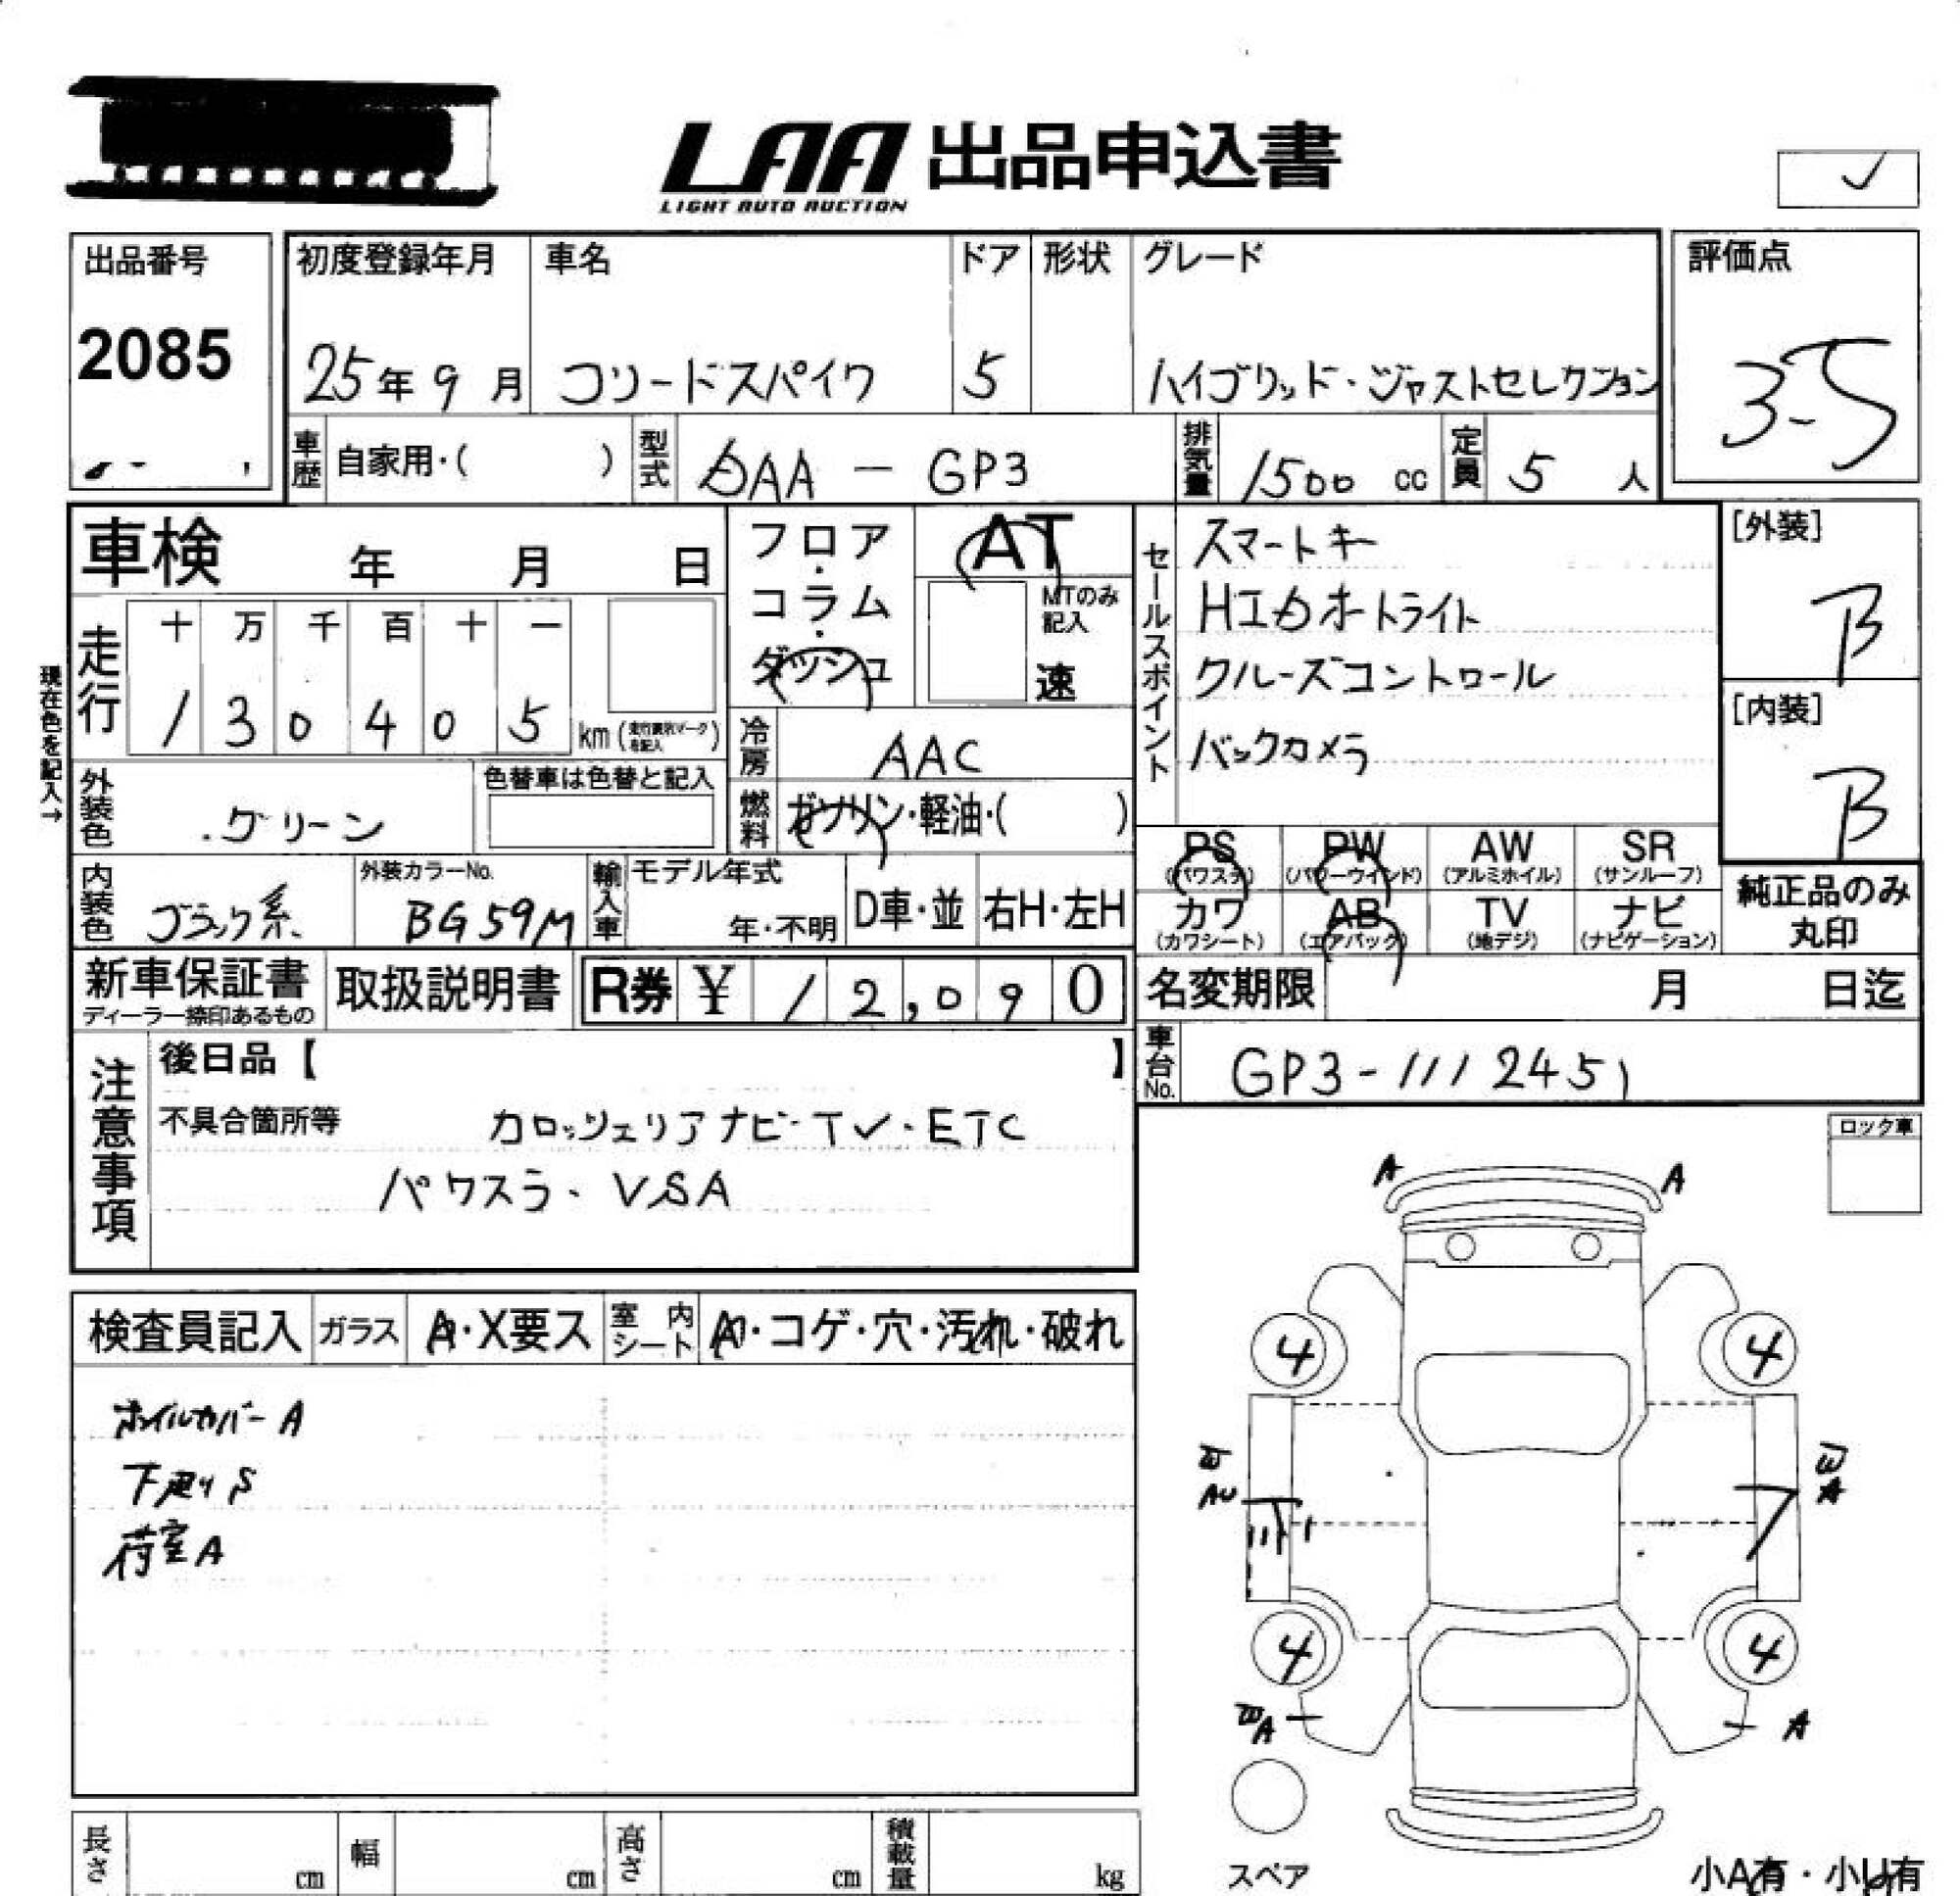 LAA 出品申込書
LIGHT AUTO AUCTION
出品番号
2085
初度登録年月
25年9月
車名
フリードスパイク
ドア
5
形状
グレード
ハイブリッド・ジャストセレクション
評価点
3.5
車歴 自家用・( )
型式 DAA - GP3
排気量 1500 cc
定員 5 人
車検 年 月 日
フロア・コラム・ダッシュ
AT
MTのみ記入
速
セールスポイント
スマートキー
HIDオートライト
クルーズコントロール
バックカメラ
[外装]
B
[内装]
B
現在色を記入→
走行
十 万 千 百 十 一
1 3 0 4 0 5 km
冷房 AAC
外装色 グリーン
色替車は色替と記入
燃料 ガソリン・軽油・( )
内装色 ブラック系
外装カラーNo.
BG59M
輸入車 モデル年式
年・不明
D車・並
右H・左H
PS (パワステ)
PW (パワーウインド)
AW (アルミホイル)
SR (サンルーフ)
カワ (カワシート)
AB (エアバック)
TV (地デジ)
ナビ (ナビゲーション)
純正品のみ
丸印
新車保証書
ディーラー捺印あるもの
取扱説明書
R券 ¥ 12,090
名変期限 月 日迄
車台No. GP3-1112451
注意事項
後日品【 】
不具合箇所等 カロッツェリアナビ・TV・ETC
パワスラ・VSA
ロック車
検査員記入
ガラス A・X要ス
室内シート
・コゲ・穴・汚れ・破れ
ホイルカバーA
下廻りS
荷室A
A A
4 4
A
4 4
A A
スペア
長さ cm
幅 cm
高さ cm
積載量 kg
小A有・小U有